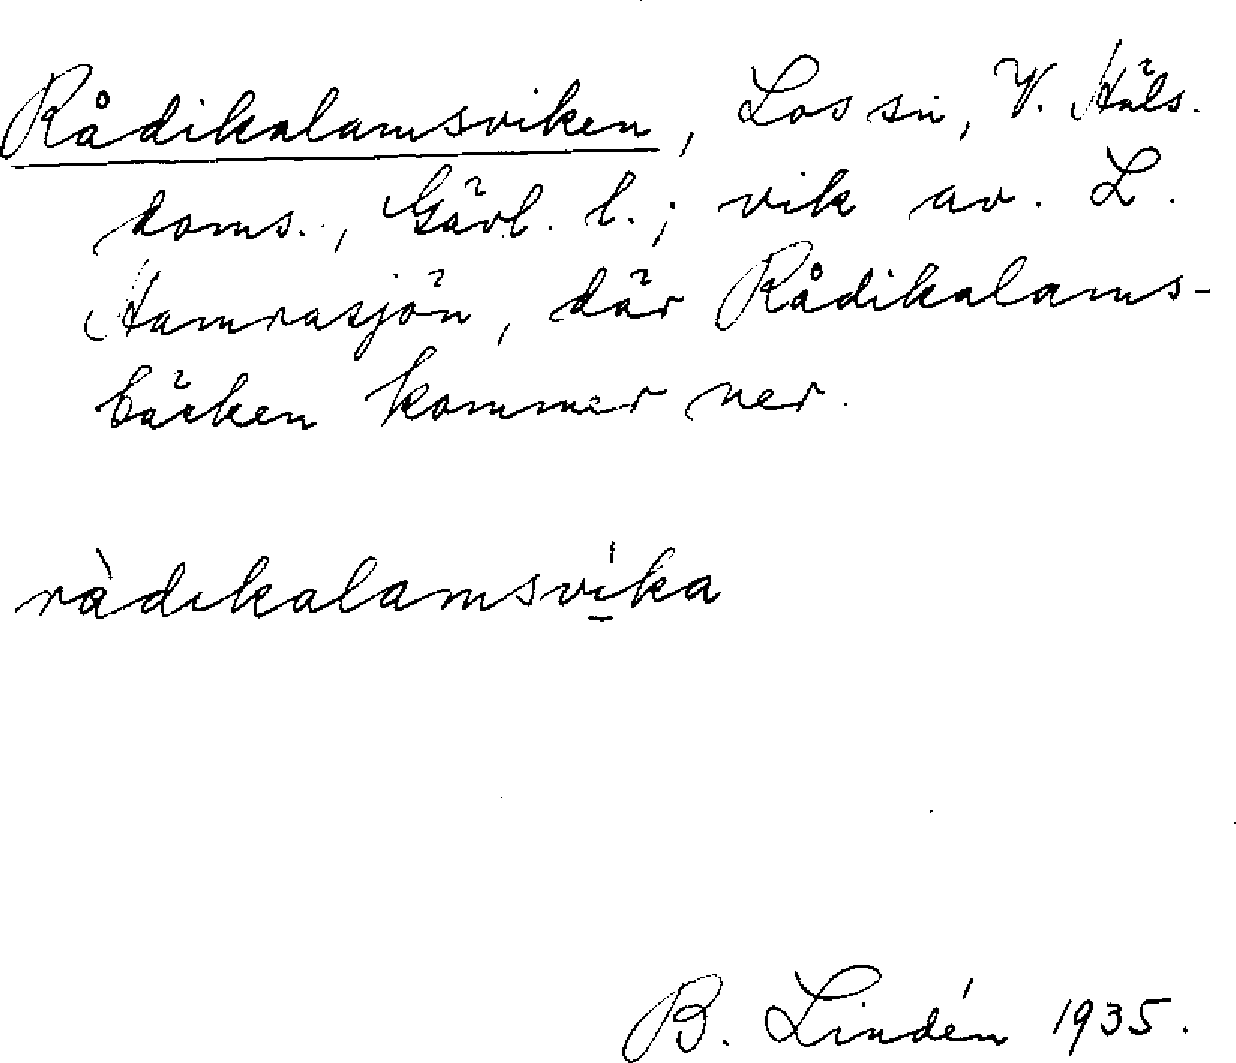 Rådikalamsviken, Los sn, V. Häls.
doms., Gävl. l.; vik av. L.
Hamrasjön, där Rådikalams-
bäcken kommer ner.
ràdıkalamsví̱ka
B. Lindén 1935.